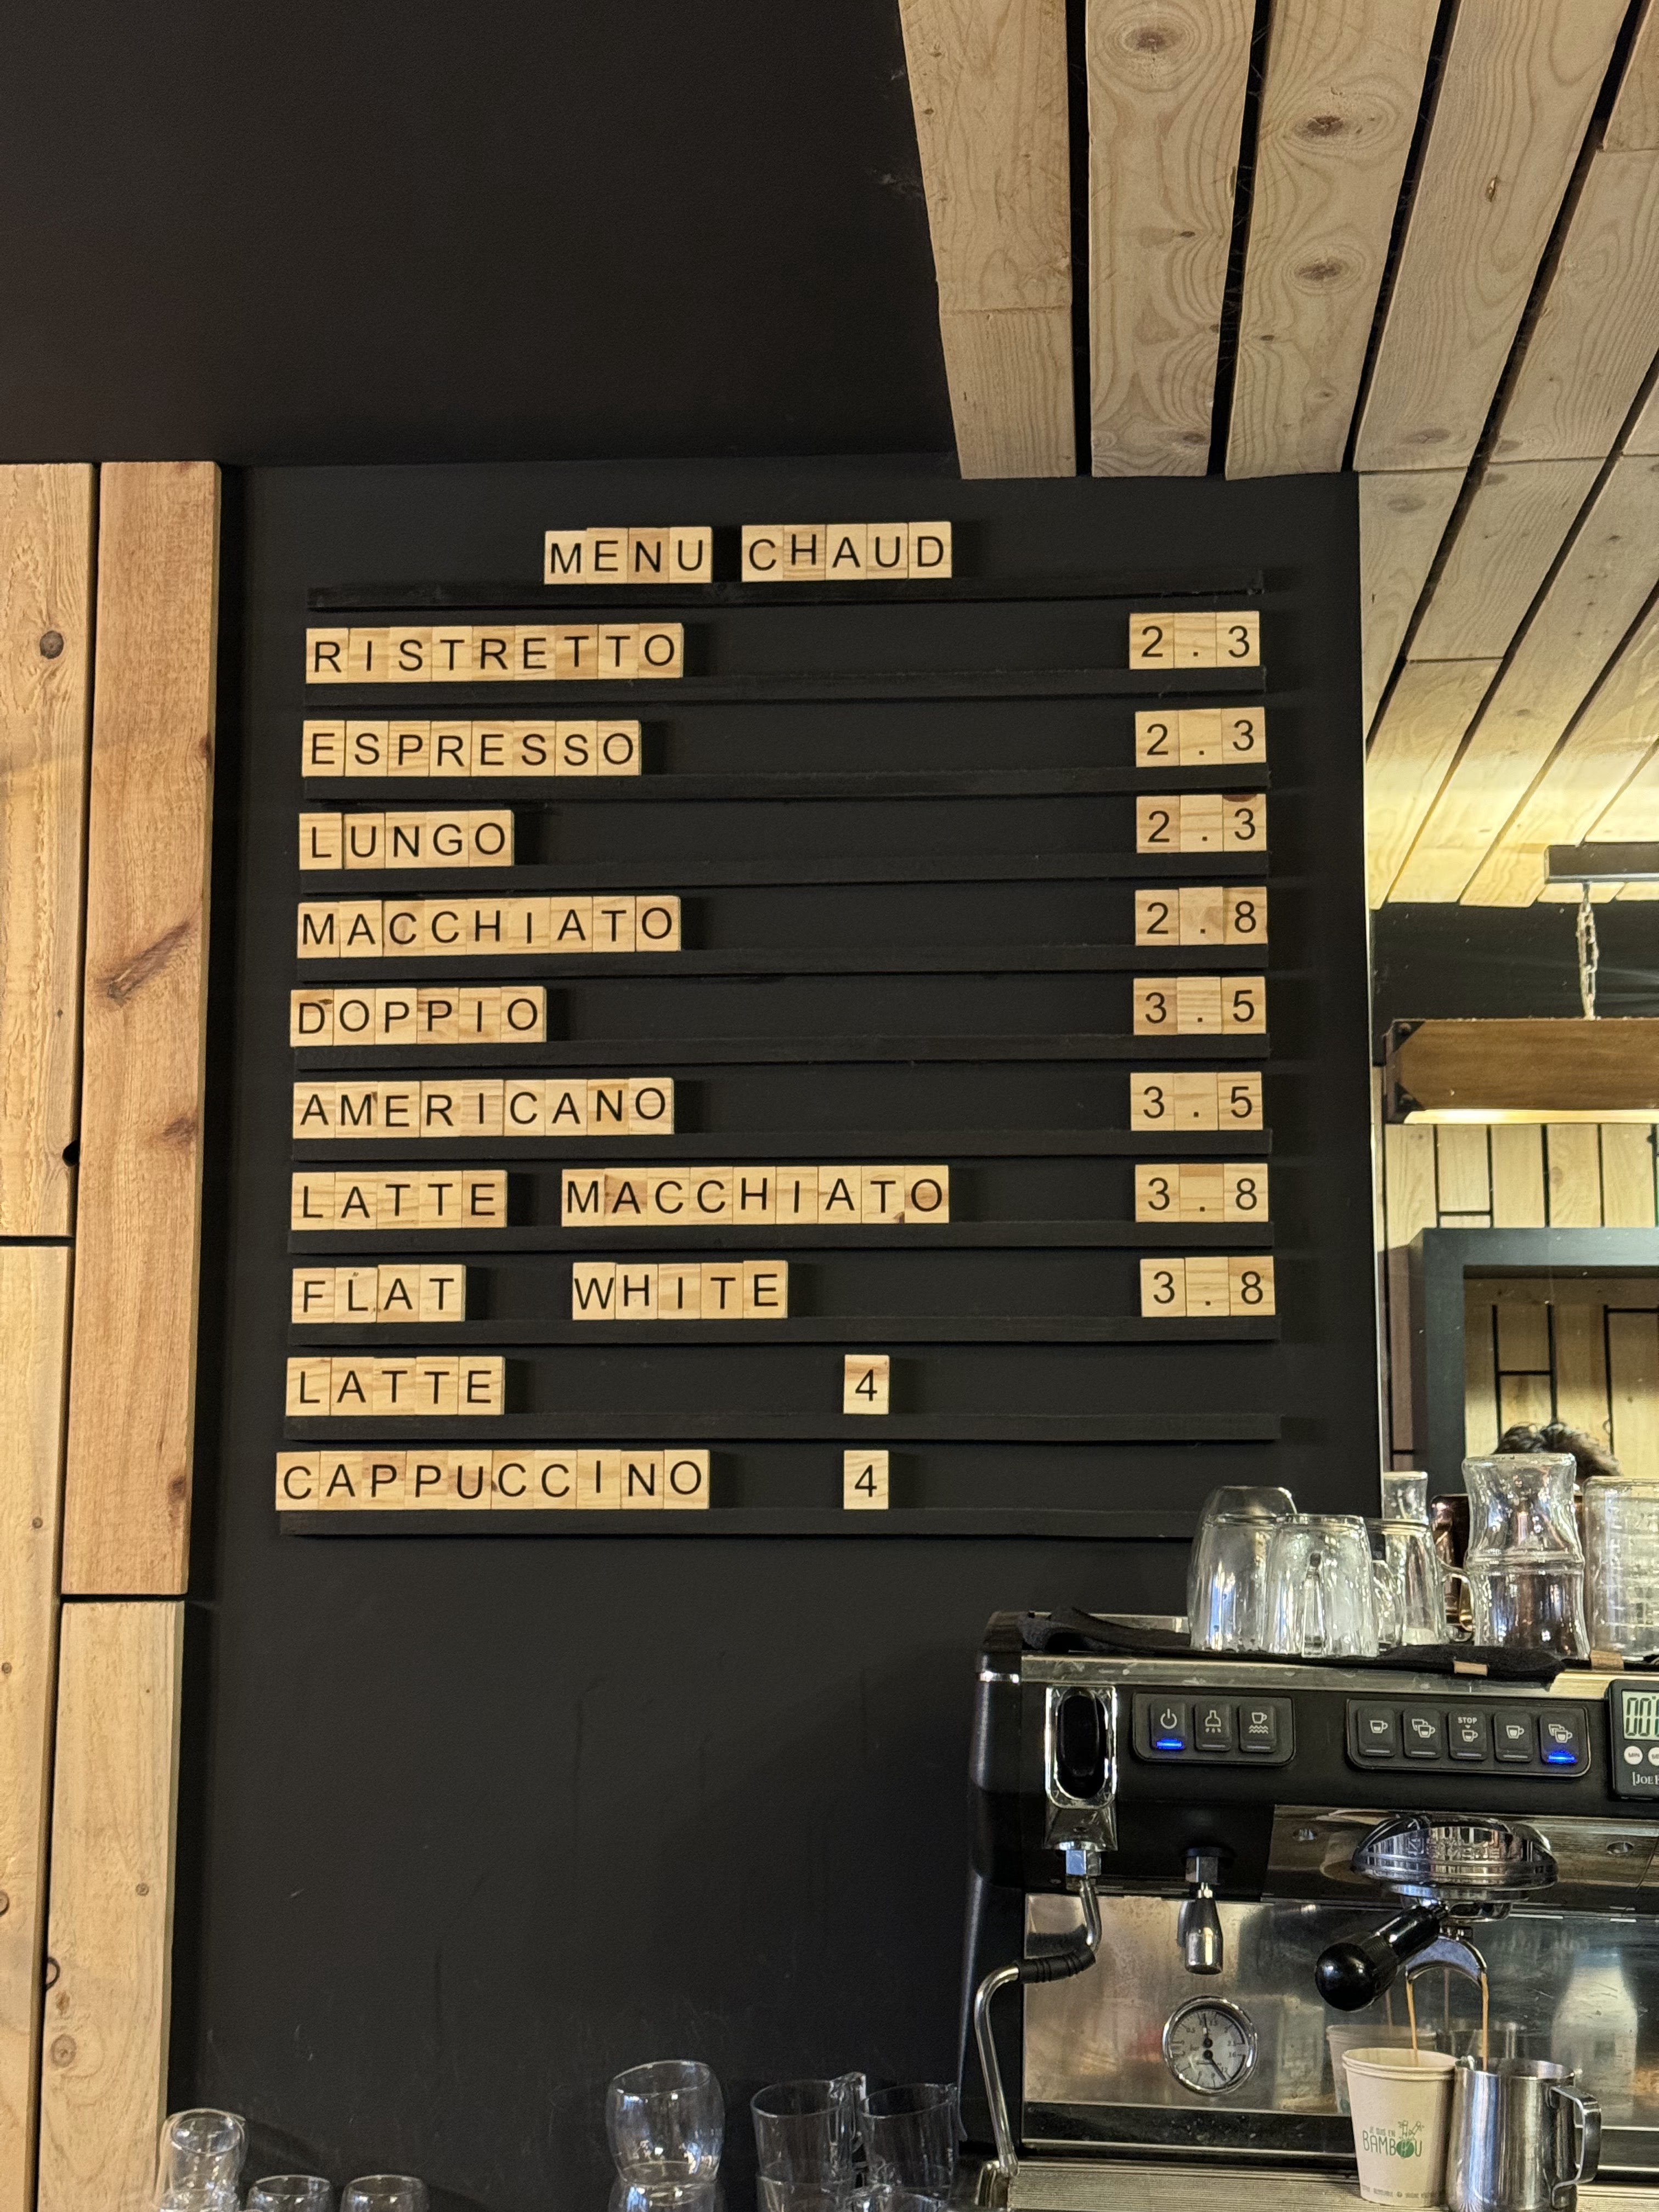 MENU CHAUD
RISTRETTO 2.3
ESPRESSO 2.3
LUNGO 2.3
MACCHIATO 2.8
DOPPIO 3.5
AMERICANO 3.5
LATTE MACCHIATO 3.8
FLAT WHITE 3.8
LATTE 4
CAPPUCCINO 4
STOP
JE SUIS EN
BAMBOU